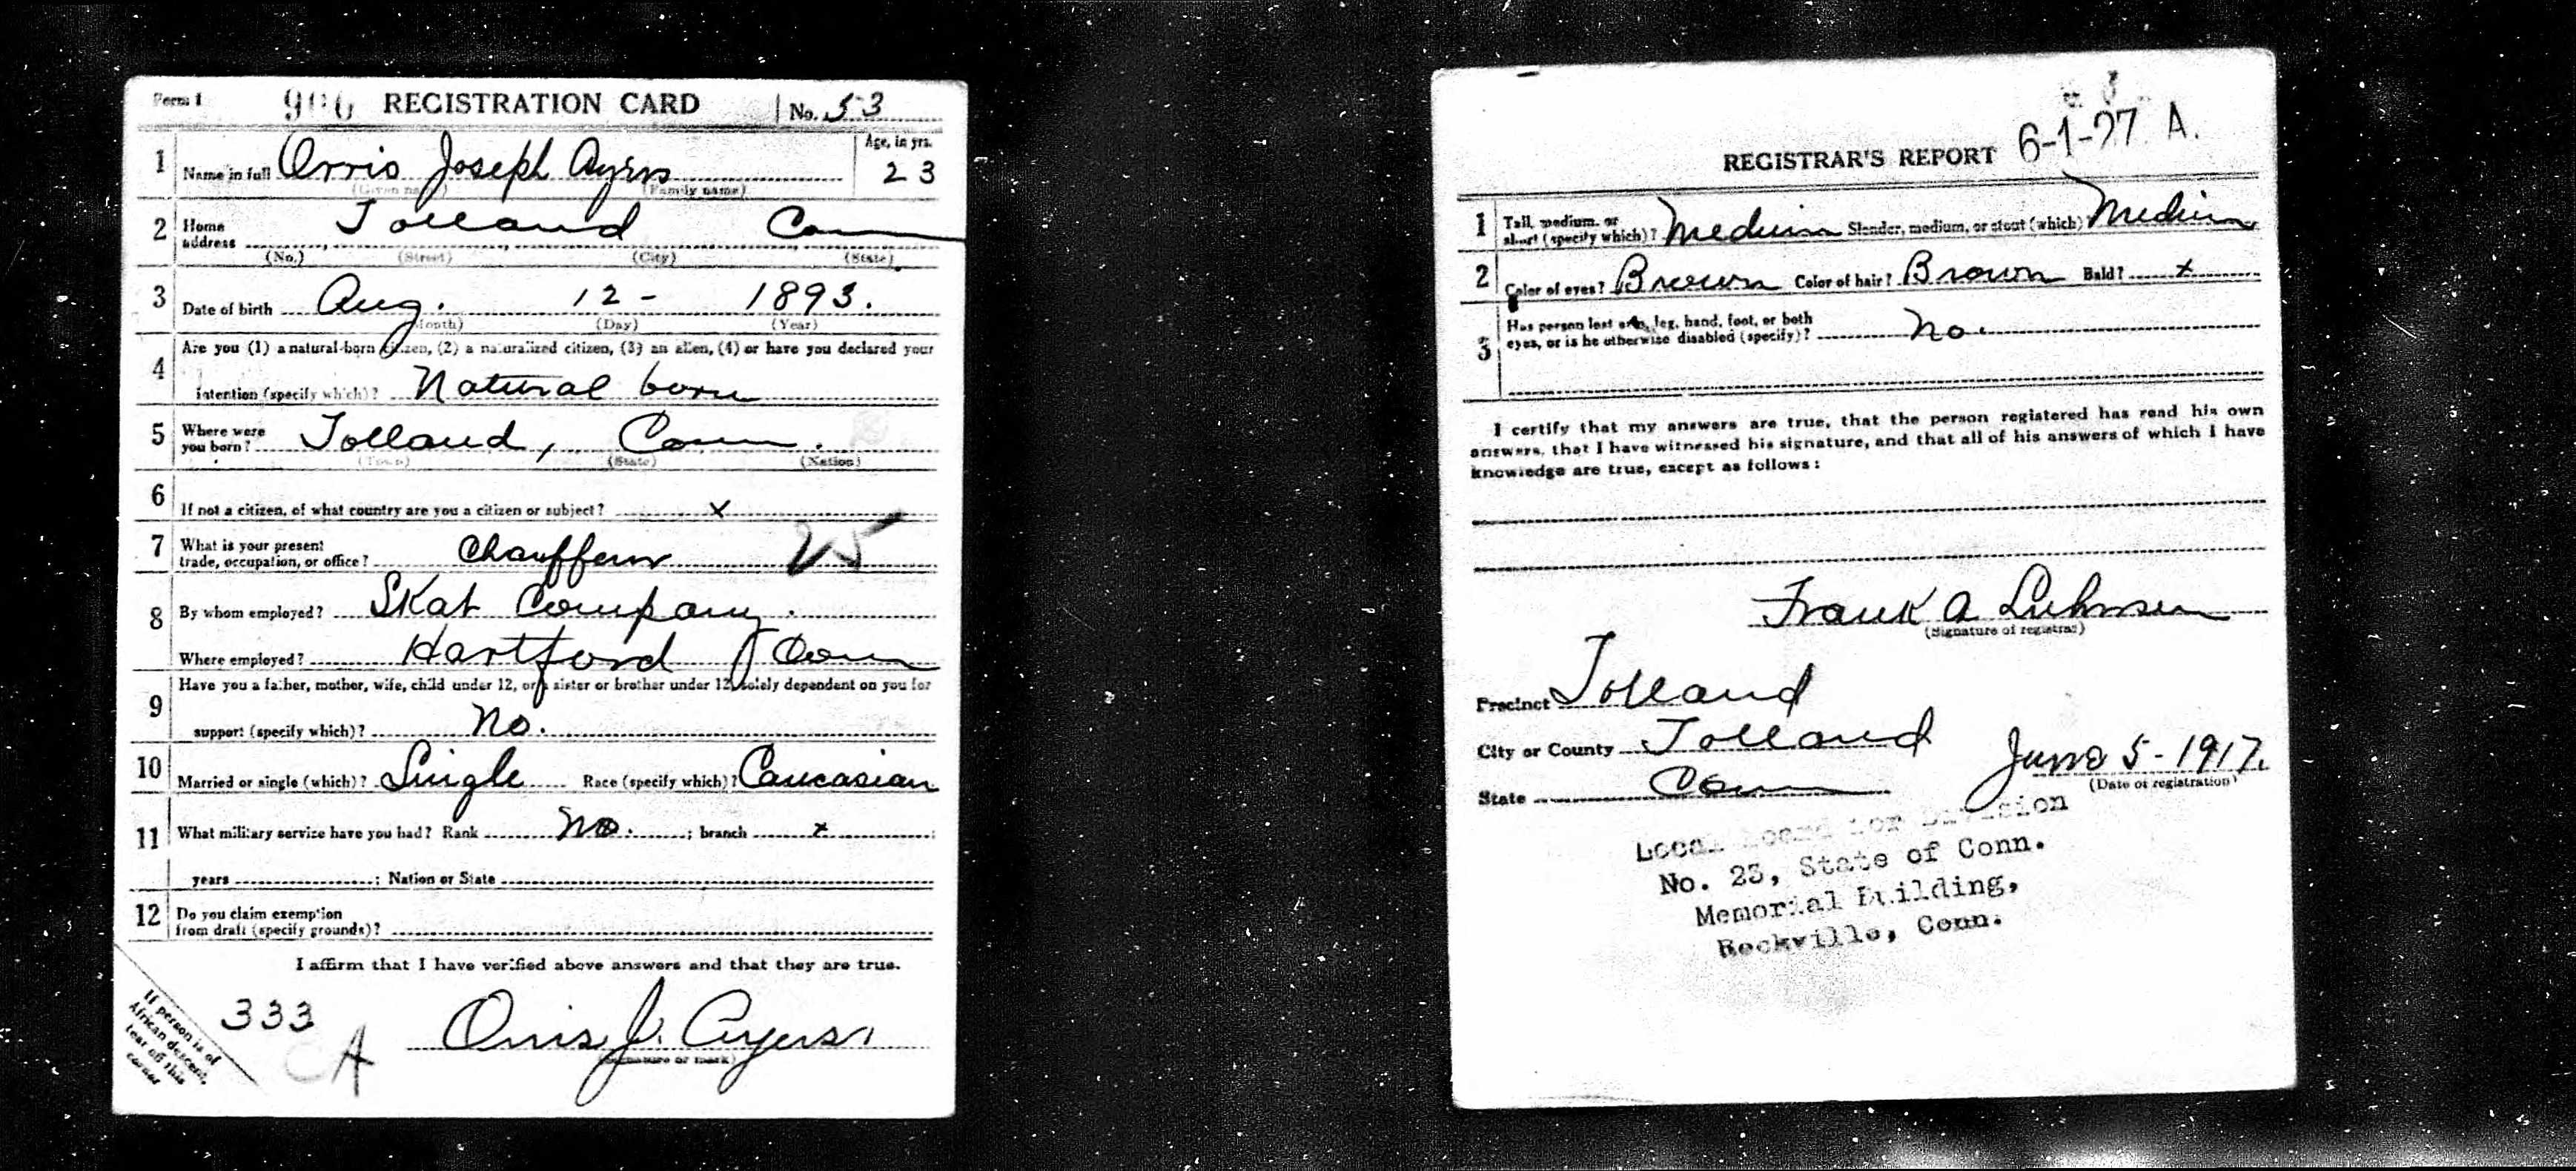 Form 1 906 REGISTRATION CARD No. 53
1 Name in full Orris Joseph Ayers Age, in yrs. 23
(Given name) (Family name)
2 Home address Tolland Conn
(No.) (Street) (City) (State)
3 Date of birth Aug. 12 - 1893.
(Month) (Day) (Year)
4 Are you (1) a natural-born citizen, (2) a naturalized citizen, (3) an alien, (4) or have you declared your
intention (specify which)? Natural born
5 Where were you born? Tolland, Conn.
(Town) (State) (Nation)
6 If not a citizen, of what country are you a citizen or subject? x
7 What is your present trade, occupation, or office? Chauffeur 25
8 By whom employed? Skat Company.
Where employed? Hartford, Conn
9 Have you a father, mother, wife, child under 12, or a sister or brother under 12, solely dependent on you for
support (specify which)? No.
10 Married or single (which)? Single Race (specify which)? Caucasian
11 What military service have you had? Rank No. ; branch x ;
years ; Nation or State
12 Do you claim exemption
from draft (specify grounds)?
I affirm that I have verified above answers and that they are true.
333 A
Orris J. Ayers.
(Signature or mark)
If person is of
African descent,
tear off this
corner
6-1-27 A.
REGISTRAR'S REPORT
1 Tall, medium, or short (specify which)? Medium Slender, medium, or stout (which)? Medium
2 Color of eyes? Brown Color of hair? Brown Bald? x
3 Has person lost arm, leg, hand, foot, or both
eyes, or is he otherwise disabled (specify)? No.
I certify that my answers are true, that the person registered has read his own
answers, that I have witnessed his signature, and that all of his answers of which I have
knowledge are true, except as follows:
Frank A
(Signature of registrar)
Precinct Tolland
City or County Tolland
State Conn June 5 - 1917.
(Date of registration)
Local Board for Division
No. 23, State of Conn.
Memorial Building,
Rockville, Conn.